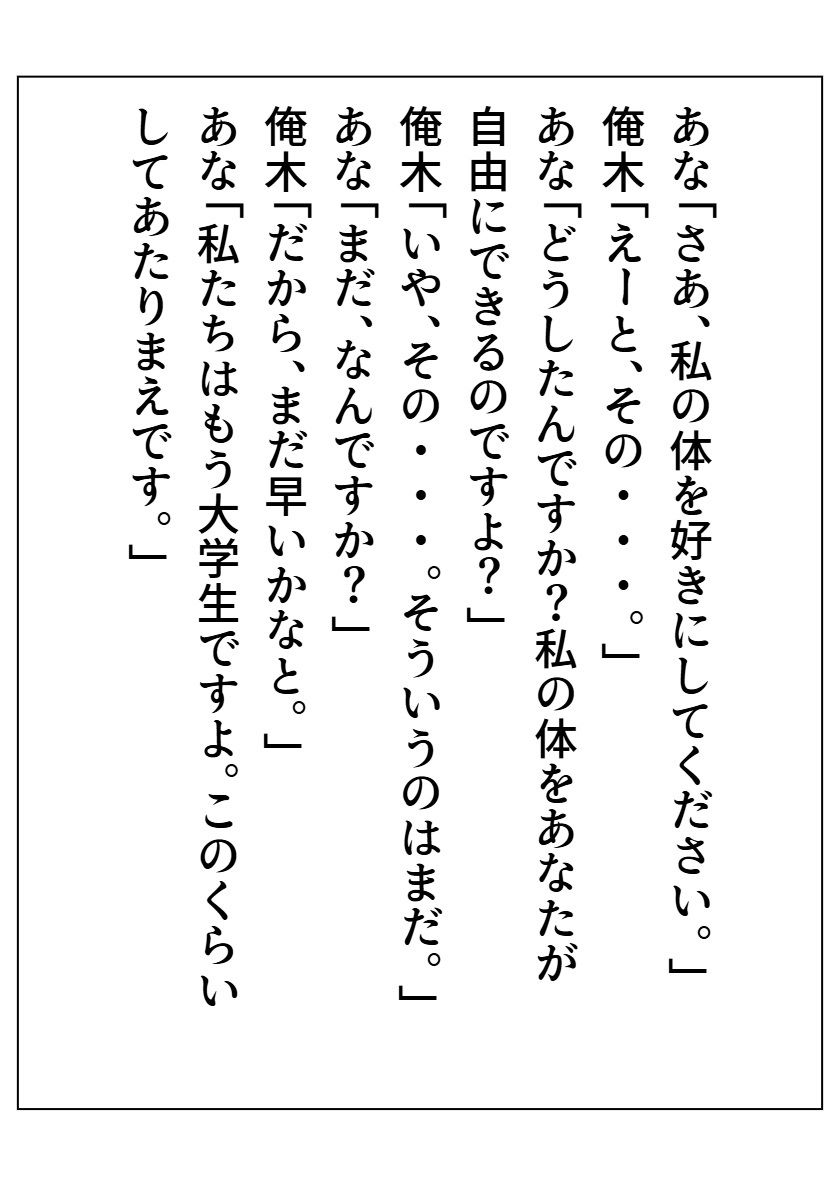 あな「さあ、私の体を好きにしてください。」
俺木「えーと、その・・・。」
あな「どうしたんですか？私の体をあなたが
自由にできるのですよ？」
俺木「いや、その・・・。そういうのはまだ。」
あな「まだ、なんですか？」
俺木「だから、まだ早いかなと。」
あな「私たちはもう大学生ですよ。このくらい
してあたりまえです。」